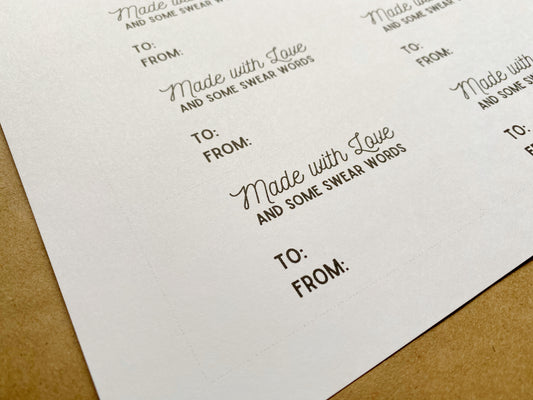 Made with
AND SOME SWEAR WORDS
TO:
FROM:
Made with Love
AND SOME SWEAR WORDS
TO:
FROM:
Made with Love
AND SOME SWEAR WORDS
TO:
FROM:
AND SOME SWEAR
TO:
FROM:
Made with
AND SOME SWEAR
TO: